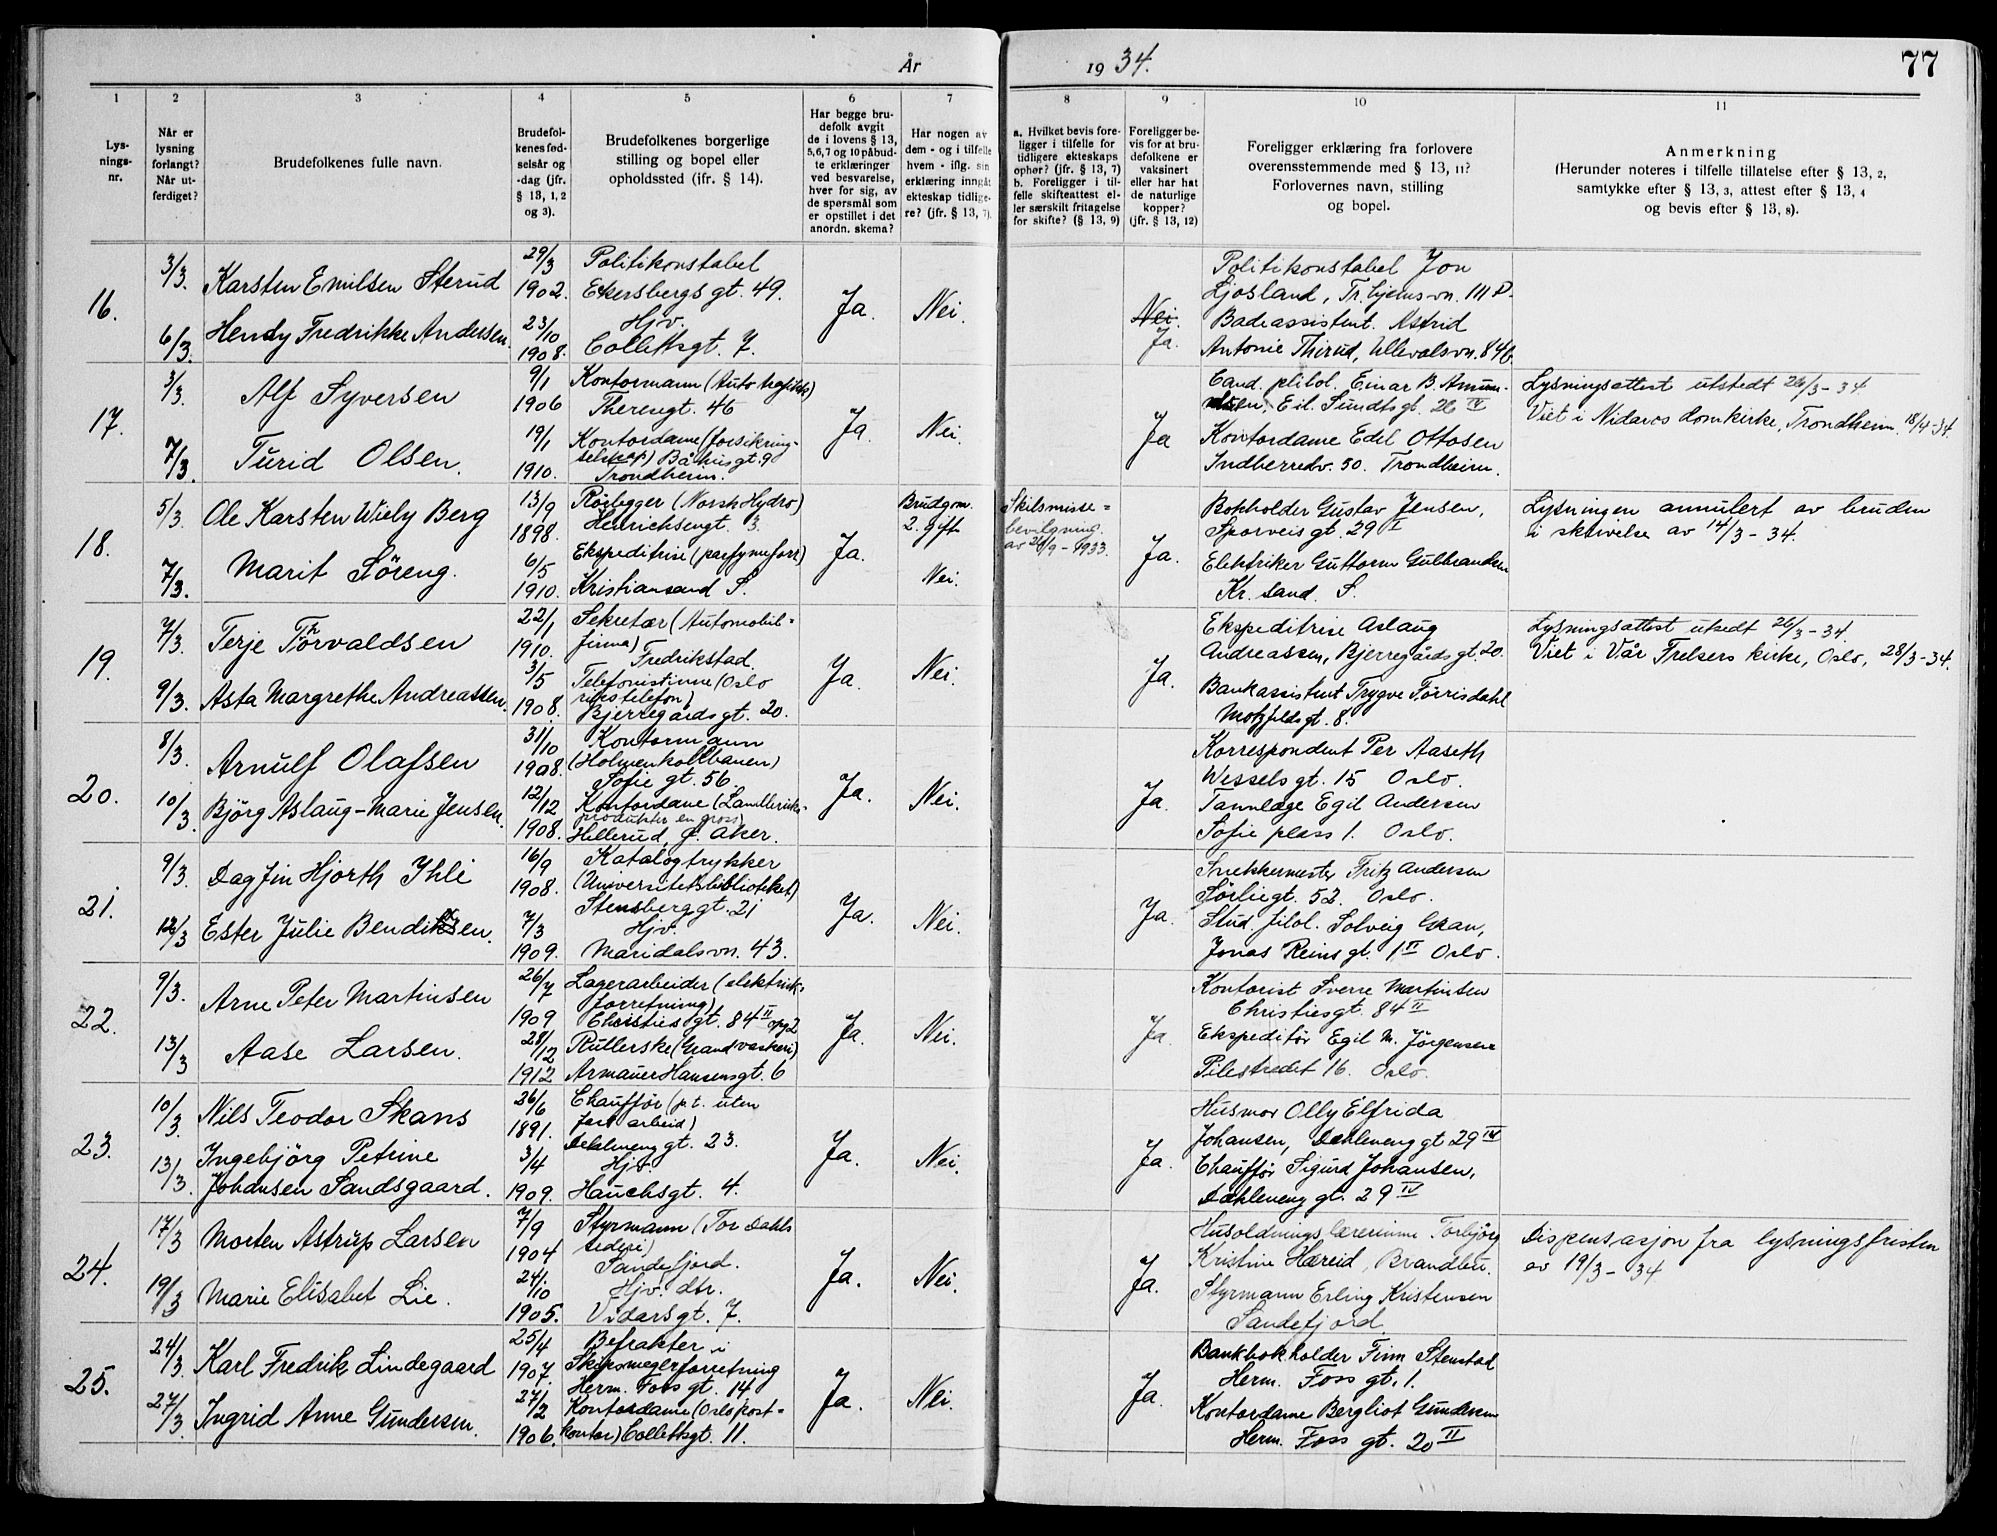 År 1934.
77
1
2
3
4
5
6
7
8
9
10
11
Lys-
nings-
nr.
Når er
lysning
forlangt?
Når ut-
ferdiget?
Brudefolkenes fulle navn.
Brudefol-
kenes fød-
selsår og
-dag (jfr.
§ 13, 1, 2
og 3).
Brudefolkenes borgerlige
stilling og bopel eller
opholdssted (ifr. § 14).
Har begge bru-
defolk avgit
de i lovens § 13,
5,6,7 og 10 påbud-
te erklæringer
ved besvarelse,
hver for sig, av
de spørsmål som
er opstillet i det
anordn. skema?
Har nogen av
dem - og i tilfelle
hvem - iflg. sin
erklæring inngåt
ekteskap tidlige-
re? (jfr. § 13, 7).
a. Hvilket bevis fore-
ligger i tilfelle for
tidligere ekteskaps
ophør? (jfr. § 13, 7)
b. Foreligger i til-
felle skifteattest el-
ler særskilt fritagelse
for skifte? (§ 13, 9)
Foreligger be-
vis for at bru-
defolkene er
vaksinert
eller har hat
de naturlige
kopper?
(jfr. § 13, 12)
Foreligger erklæring fra forlovere
overensstemmende med § 13, 11?
Forlovernes navn, stilling
og bopel.
Anmerkning
(Herunder noteres i tilfelle tillatelse efter § 13, 2,
samtykke efter § 13, 3, attest efter § 13, 4
og bevis efter § 13, 8).
16.
3/3
6/3.
Karsten Emilsen Sterud
Hendy Fredrikke Andersen.
29/3
1902.
23/10
1908.
Politikonstabel
Ekersbergs gt. 49.
Hjv.
Collettsgt. 7.
Ja.
Nei.
Nei.
Ja.
Politikonstabel Jon
Ljosland,
Badeassistent. Astrid
Antonie Thirud, Ullevålsvn. 84b.
17.
3/3.
7/3.
Alf Syversen
Turid Olsen.
9/1
1906
19/1
1910.
Kontormann (Auto trafikk)
Theresgt. 46
Kontordame (forsikring-
selskap) Båhusgt. 9
Trondheim.
Ja.
Nei.
Ja
Cand. philol. Einar B. Amun-
Eil. Sundts gt. 26 IV
Kontordame Edel Ottosen
Indherredv. 50. Trondheim.
Lysningsattest utstedt 26/3-34.
Viet i Nidaros domkirke, Trondheim. 18/4-34.
18.
5/3.
7/3.
Ole Karsten Wiely Berg
Marit Söreng.
13/9
1898.
6/5
1910.
Rørlegger (Norsk Hydro)
Henrichsengt. 3
Ekspeditrise (parfymeforr.)
Kristiansand S.
Ja.
Brudgom
2. gift
Nei.
Skilsmisse=
bevilgning.
1933.
Ja.
Bokholder Gustav Jensen,
Sporveisgt. 29 I
Elektriker Guttorm Gulbrandsen
Kr. sand. S.
Lysningen annulert av bruden
i skrivelse av 14/3-34.
19.
7/3.
9/3.
Terje Thorvaldsen
Asta Margrethe Andreassen.
22/1
1910.
3/5
1908.
Sekretær (Automobil=
firma)
Fredrikstad.
Telefonistinne (Oslo
rikstelefon)
Bjerregårdsgt. 20.
Ja.
Nei.
Ja.
Ekspeditrise Aslaug
Andreassen, Bjerregårds gt. 20.
Bankassistent Trygve Torrisdahl
Motzfeldsgt. 8.
Lysningsattest utstedt 26/3-34.
Viet i Vår Frelsers kirke, Oslo, 28/3-34.
20.
8/3.
10/3.
Arnulf Olafsen
Björg Aslaug-Marie Jensen.
31/10
1908.
12/12
1908.
Kontormann
(Holmenkollbanen)
Sofie gt. 56.
Kontordame (Landbruks-
produkter en gross)
Hellerud, Ø. Aker.
Ja.
Nei.
Ja.
Korrespondent Per Aaseth
Wessels gt. 15 Oslo.
Tannlæge Egil Andersen
Sofie plass 1. Oslo.
21.
9/3.
12/3
Dagfin Hjorth Ihle
Ester Julie Bendiksen.
16/9
1908.
7/3
1909.
Katalogtrykker
(Universitetsbiblioteket)
Stensberggt. 21
Hjv.
Maridalsvn. 43.
Ja.
Nei.
Ja.
Snekkermester Fritz Andersen
Sörliegt. 52. Oslo.
Stud. filol. Solveig Gran,
Jonas Reins gt. 1 II Oslo.
22.
9/3.
13/3
Arne Peter Martinsen
Aase Larsen.
26/7
1909
28/12
1912
Lagerarbeider (elektrisk-
forretning)
Christies gt. 84 II opg 2
Rullerske (Grand vaskeri)
Armauer Hansensgt. 6
Ja.
Nei.
Ja.
Kontorist Sverre Martinsen
Christiesgt. 84 II
Ekspeditör Egil M. Jörgensen
Pilestredet 16. Oslo.
23.
10/3.
13/3.
Nils Teodor Skans
Ingebjörg Petrine
Johansen Sandsgaard.
26/6
1891.
3/4
1909.
Chauffør (p.t. uten
fast arbeid)
Dehlenenggt. 23.
Hjv.
Hauchsgt. 4.
Ja.
Nei.
Ja.
Husmor Olly Elfrida
Johansen, Dæhleneng gt 29 IV
Chauffør Sigurd Johansen,
Dæhleneng gt. 29 IV
24.
17/3
19/3
Morten Astrup Larsen
Marie Elisabet Lie.
7/9
1904
24/10
1905.
Styrmann (Tor Dahls
rederi)
Sandefjord.
Hjv. dtr.
Vidarsgt. 7.
Ja.
Nei.
Ja.
Husholdningslærerinne Torbjörg
Kristine Hæreid, Brandbu.
Styrmann Erling Kristensen
Sandefjord
Dispensasjon fra lysningsfristen
av 19/3-34
25.
24/3
27/3
Karl Fredrik Lindegaard
Ingrid Anne Gundersen.
25/4
1907.
27/2
1906.
Befrakter i
Skipsmeglerforretning
Herm. Foss gt. 14
Kontordame (Oslo post=
kontor) Collettsgt. 11.
Ja.
Nei.
Ja.
Bankbokholder Finn Stenstad
Herm. Foss gt. 1.
Kontordame Bergliot Gundersen
Herm. Foss gt. 20 II